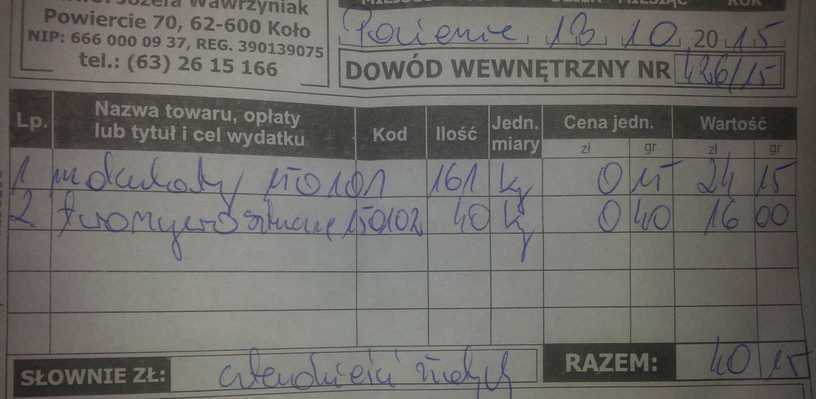 Józefa Wawrzyniak
Powiercie 70, 62-600 Koło
NIP: 666 000 09 37, REG. 390139075
tel.: (63) 26 15 166
13 10 2015
DOWÓD WEWNĘTRZNY NR 426/15
Lp. Nazwa towaru, opłaty lub tytuł i cel wydatku Kod Ilość Jedn. miary Cena jedn. Wartość
zł gr zł gr
1 makulatury 150101 161 kg 0 15 24 15
2 tworzywo sztuczne 150102 40 kg 0 40 16 00
SŁOWNIE ZŁ: czterdzieści złotych RAZEM: 40 15